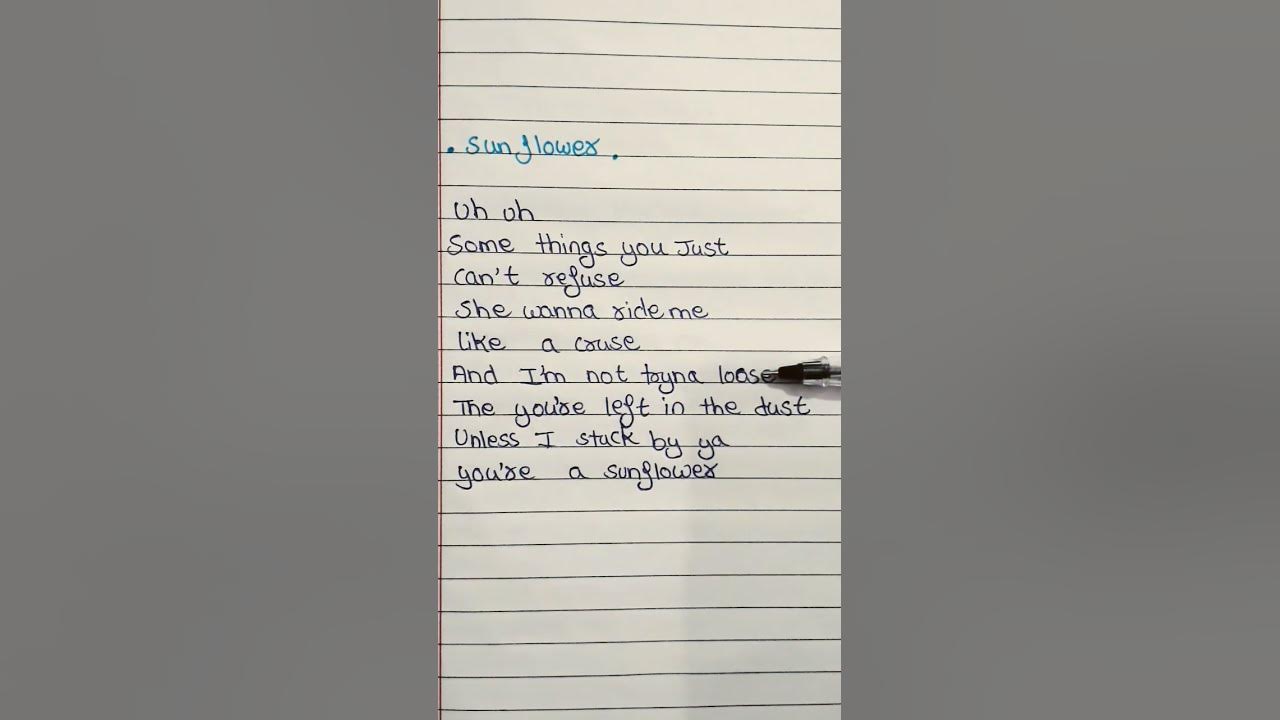 . Sunflower .
Uh uh
Some things you Just
can't refuse
She wanna ride me
like a cruse
And I'm not tryna loose
The you're left in the dust
Unless I stuck by ya
you're a sunflower